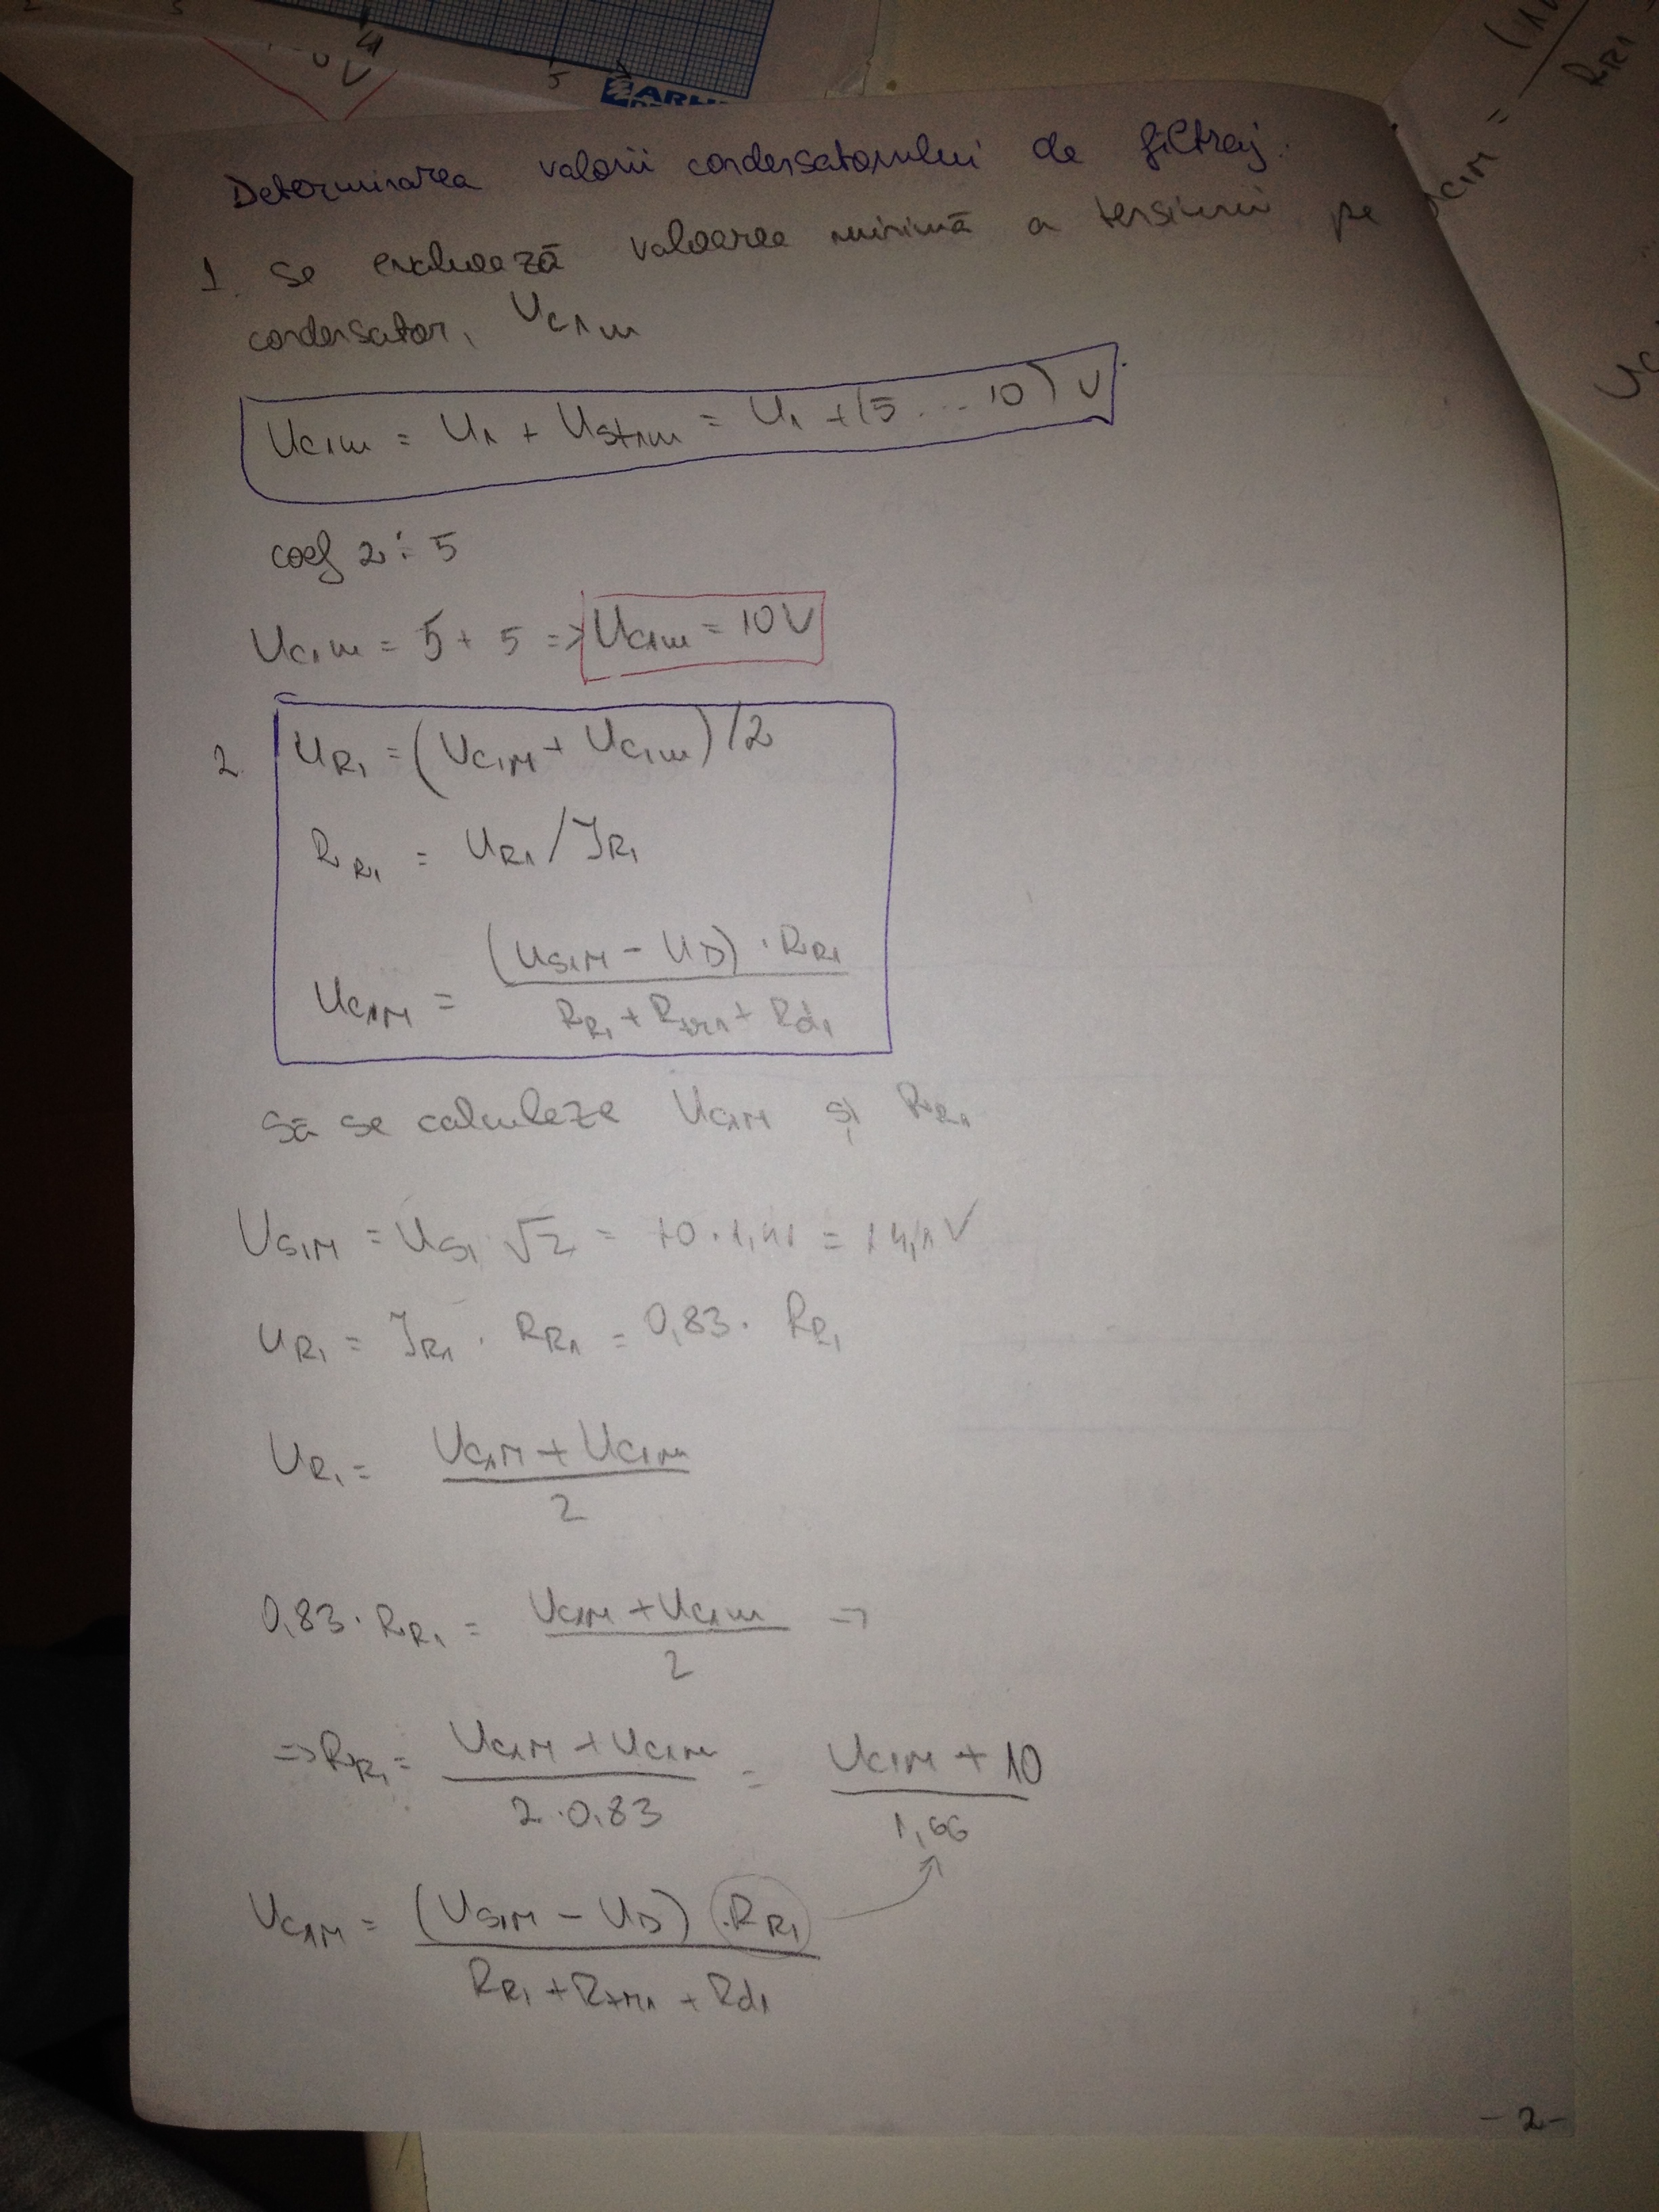 5
ARL
Determinarea valorii condensatorului de filtraj.
1. Se evaluează valoarea minimă a tensiunii pe
condensator, Uc1m
Uc1m = U1 + Ust1m = U1 + (5 ... 10) V
coef 2 ÷ 5
Uc1m = 5 + 5 => Uc1m = 10V
2. UR1 = (Uc1M + Uc1m)/2
RR1 = UR1 / IR1
Uc1M = (US1M - UD) · RR1
RR1 + Rtr1 + Rd1
Să se calculeze Uc1M și RR1
US1M = US1 √2 = 10 · 1,41 = 14,1V
UR1 = IR1 · RR1 = 0,83 · RR1
UR1 = Uc1M + Uc1m
2
0,83 · RR1 = Uc1M + Uc1m =>
2
=> RR1 = Uc1M + Uc1m = Uc1M + 10
2 · 0,83 1,66
Uc1M = (US1M - UD) · RR1
RR1 + Rtr1 + Rd1
- 2 -